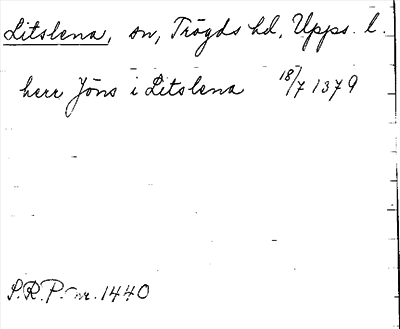 Litslena, sn, Trögds hd, Upps. l.
herr Jöns i Litslena 18/7 1379
S.R.P. nr. 1440